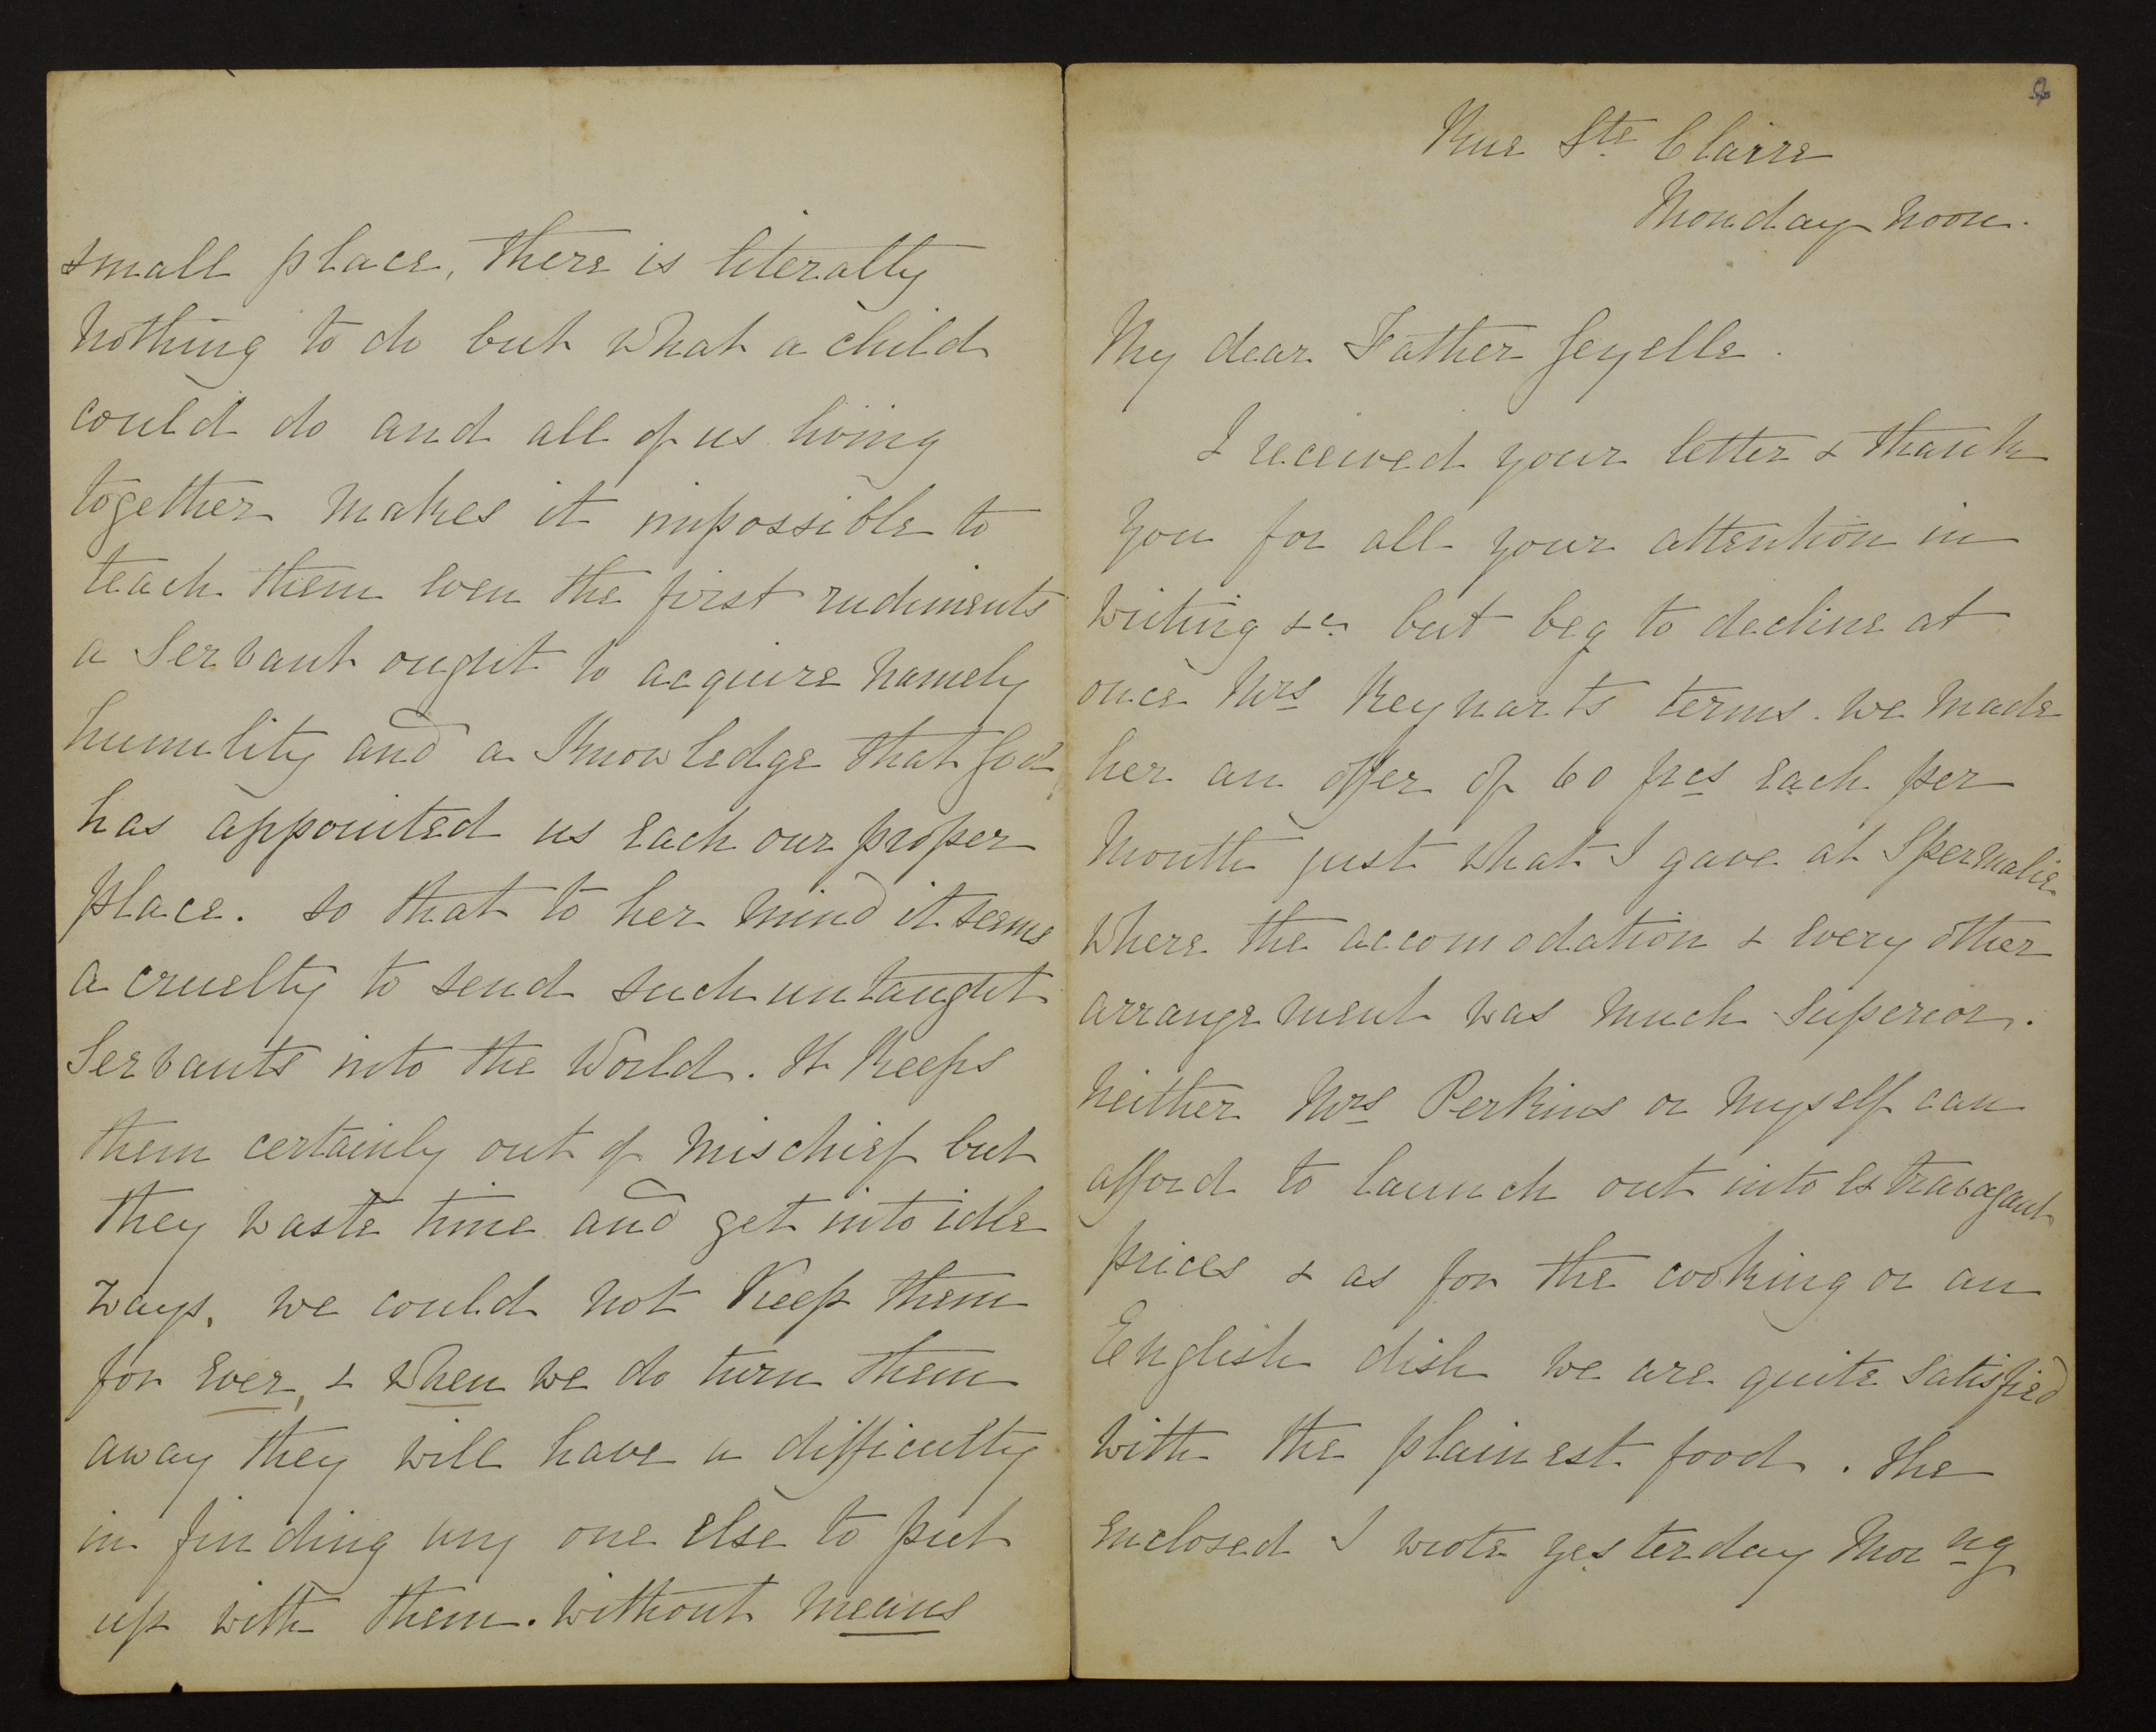 Rue Ste Claire
Monday noon.
My dear Father Gezelle.
I received your letter & thank
you for all your attention in
writing &c. but beg to decline at
once Mrs Reynarts terms. we made
her an offer of 60 frcs each per
Month just what I gave at Spermalie
where the accomodation & every other
arrangement was much superior.
Neither Mrs Perkins or myself can
afford to launch out into extravagant
prices & as for the cooking or an
English dish we are quite satisfied
with the plainest food. The
enclosed I wrote yesterday Morng
small place, there is literally
nothing to do but what a child
could do and all of us living
together makes it impossible to
teach them even the first rudiments
a Servant ought to acquire namely
humility and a Knowledge that God
has appointed us each our proper
place. so that to her mind it seems
a cruelty to send such untaught
Servants into the World. It Keeps
them certainly out of mischief but
they waste time and get into idle
ways. we could not Keep them
for ever, & when we do turn them
away they will have a difficulty
in finding any one else to put
up with them. without means